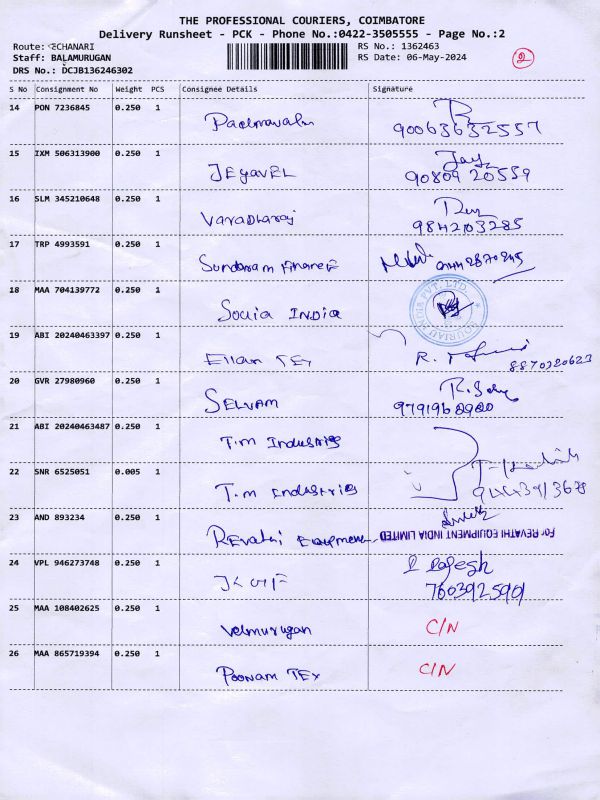 THE PROFESSIONAL COURIERS, COIMBATORE
Delivery Runsheet - PCK - Phone No.:0422-3505555 - Page No.:2
Route: ECHANARI
Staff: BALAMURUGAN
DRS No.: DCJB136246302
RS No.: 1362463
RS Date: 06-May-2024
2
S No Consignment No Weight PCS Consignee Details Signature
14 PON 7236845 0.250 1 Padmavathi
90063632557
15 IXM 506313900 0.250 1 JEYAVEL Jay
90809 20559
16 SLM 345210648 0.250 1 Varadharaj
9842103285
17 TRP 4993591 0.250 1 Sundaram Finance
18 MAA 704139772 0.250 1 Souia INDIA
19 ABI 20240463397 0.250 1 Ellan TEX R.
8870220623
20 GVR 27980960 0.250 1 SELVAM
9791960900
21 ABI 20240463487 0.250 1 T.m Industries
22 SNR 6525051 0.005 1 T.m Industries
23 AND 893234 0.250 1 Revathi Equipment For REVATHI EQUIPMENT INDIA LIMITED
24 VPL 946273748 0.250 1 Rajesh
7603925901
25 MAA 108402625 0.250 1 Velmurugan C/N
26 MAA 865719394 0.250 1 Poonam TEX C/N